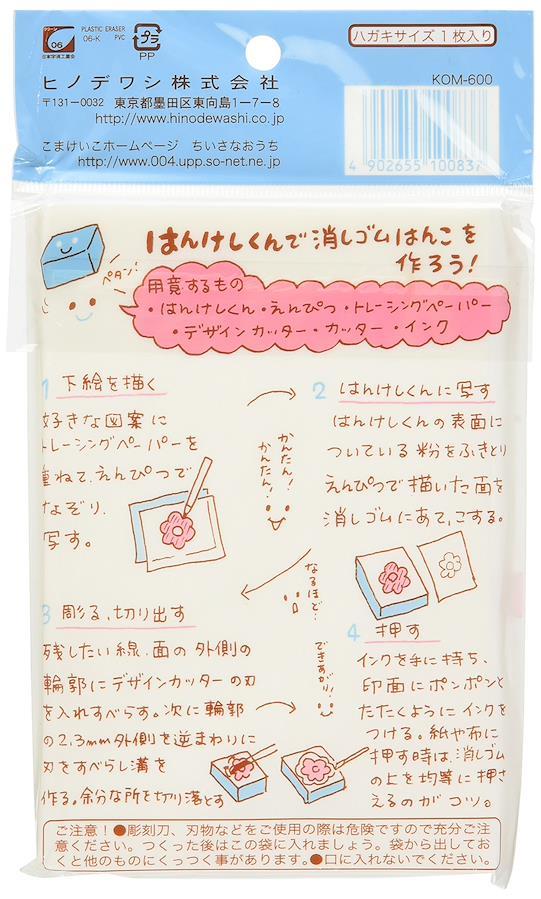 クリーン
06
日本字消工業会
PLASTIC ERASER
06-K PVC
プラ
PP
ハガキサイズ1枚入り
ヒノデワシ株式会社
〒131-0032 東京都墨田区東向島1-7-8
http://www.hinodewashi.co.jp
こまけいこホームページ ちいさなおうち
http://www.004.upp.so-net.ne.jp
KOM-600
4 902655 100837
はんけしくんで消しゴムはんこを
作ろう!
ペタン!
用意するもの
・はんけしくん・えんぴつ・トレーシングペーパー
・デザインカッター・カッター・インク
1 下絵を描く
好きな図案に
トレーシングペーパーを
重ねて、えんぴつで
なぞり、
写す。
かんたん!
かんたん!
2 はんけしくんに写す
はんけしくんの表面に
ついている粉をふきとり
えんぴつで描いた面を
消しゴムにあて、こする。
なるほど…
3 彫る、切り出す
残したい線、面の外側の
輪郭にデザインカッターの刃
を入れすべらす。次に輪郭
の2、3mm外側を逆まわりに
刃をすべらし溝を
作る。余分な所を切り落とす
できあがり!
4 押す
インクを手に持ち、
印面にポンポンと
たたくようにインクを
つける。紙や布に
押す時は、消しゴム
の上を均等に押さ
えるのがコツ。
ご注意!●彫刻刀、刃物などをご使用の際は危険ですので充分ご注
意ください。つくった後はこの袋に入れましょう。袋から出してお
くと他のものにくっつく事があります。●口に入れないでください。